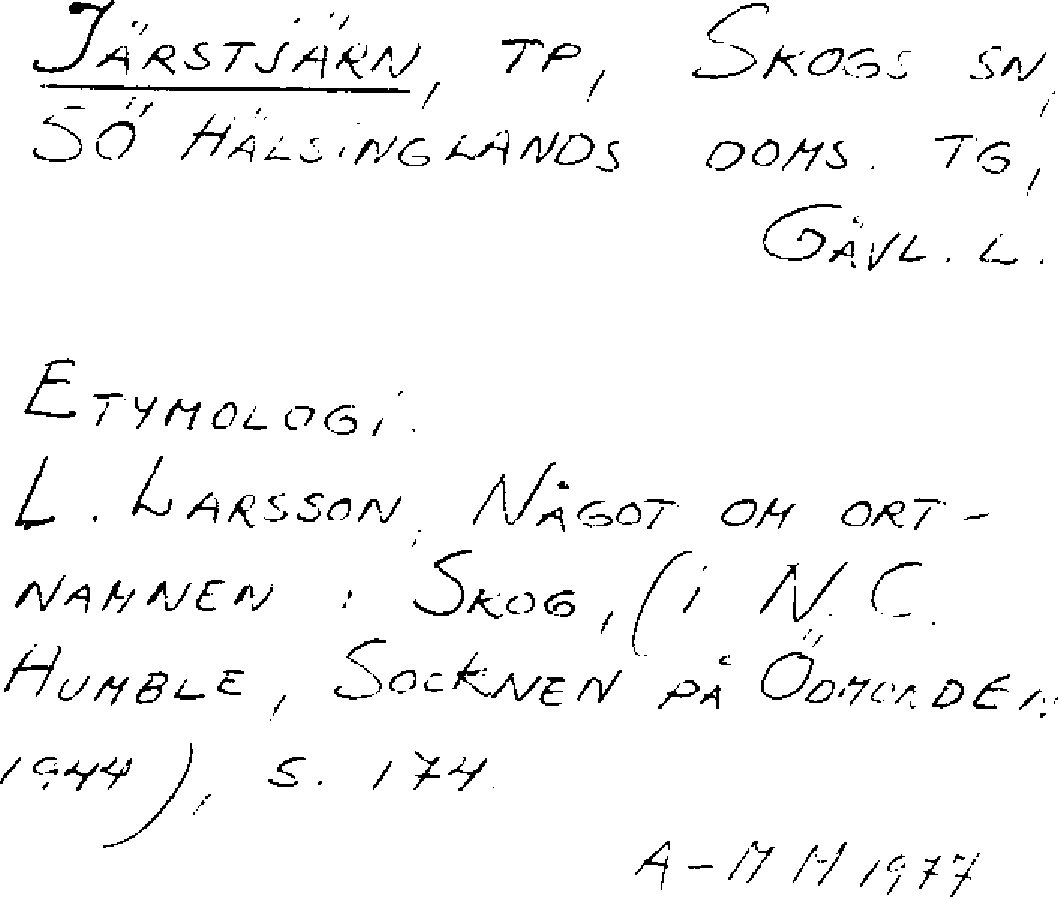 JÄRSTJÄRN, TP, SKOGS SN,
SÖ HÄLSINGLANDS DOMS. TG,
GÄVL. L.
ETYMOLOGI.
L. LARSSON, NÅGOT OM ORT-
NAMNEN I SKOG, (I N.C.
HUMBLE, SOCKNEN PÅ ÖDMORDEN
1944), S. 174.
A-M H 1977